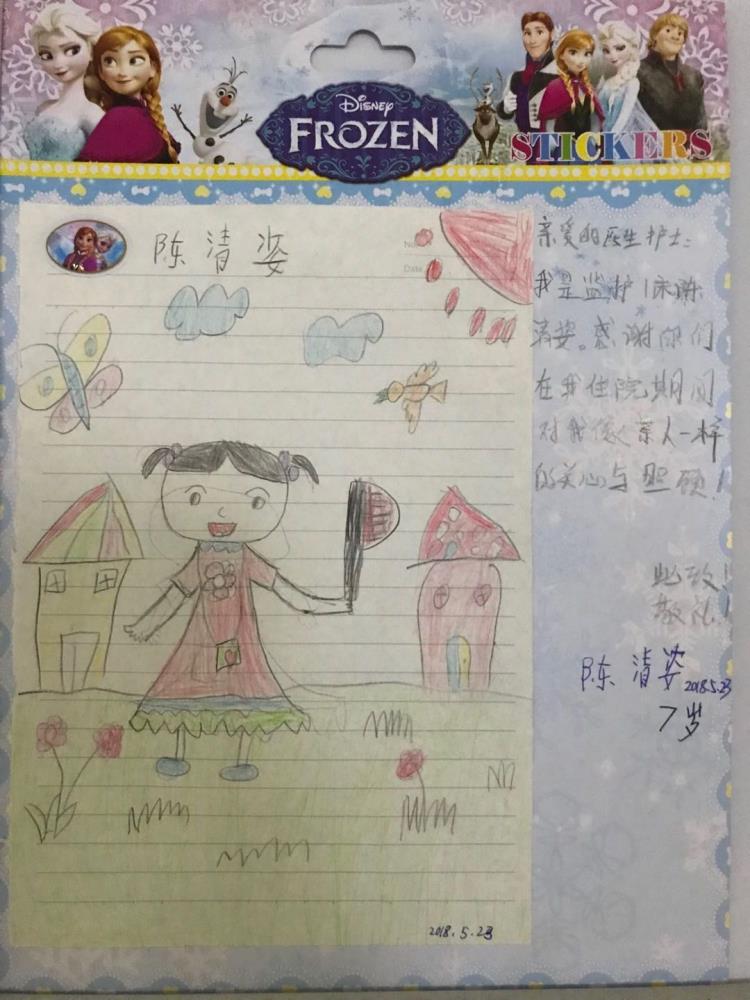 Disney
FROZEN
STICKERS
陈清姿
No
Date
亲爱的医生护士:
我是监护1床陈
清姿。感谢你们
在我住院期间
对我像亲人一样
的关心与照顾!
此致!
敬礼!
陈清姿 2018.5.23
7岁
2018.5.23